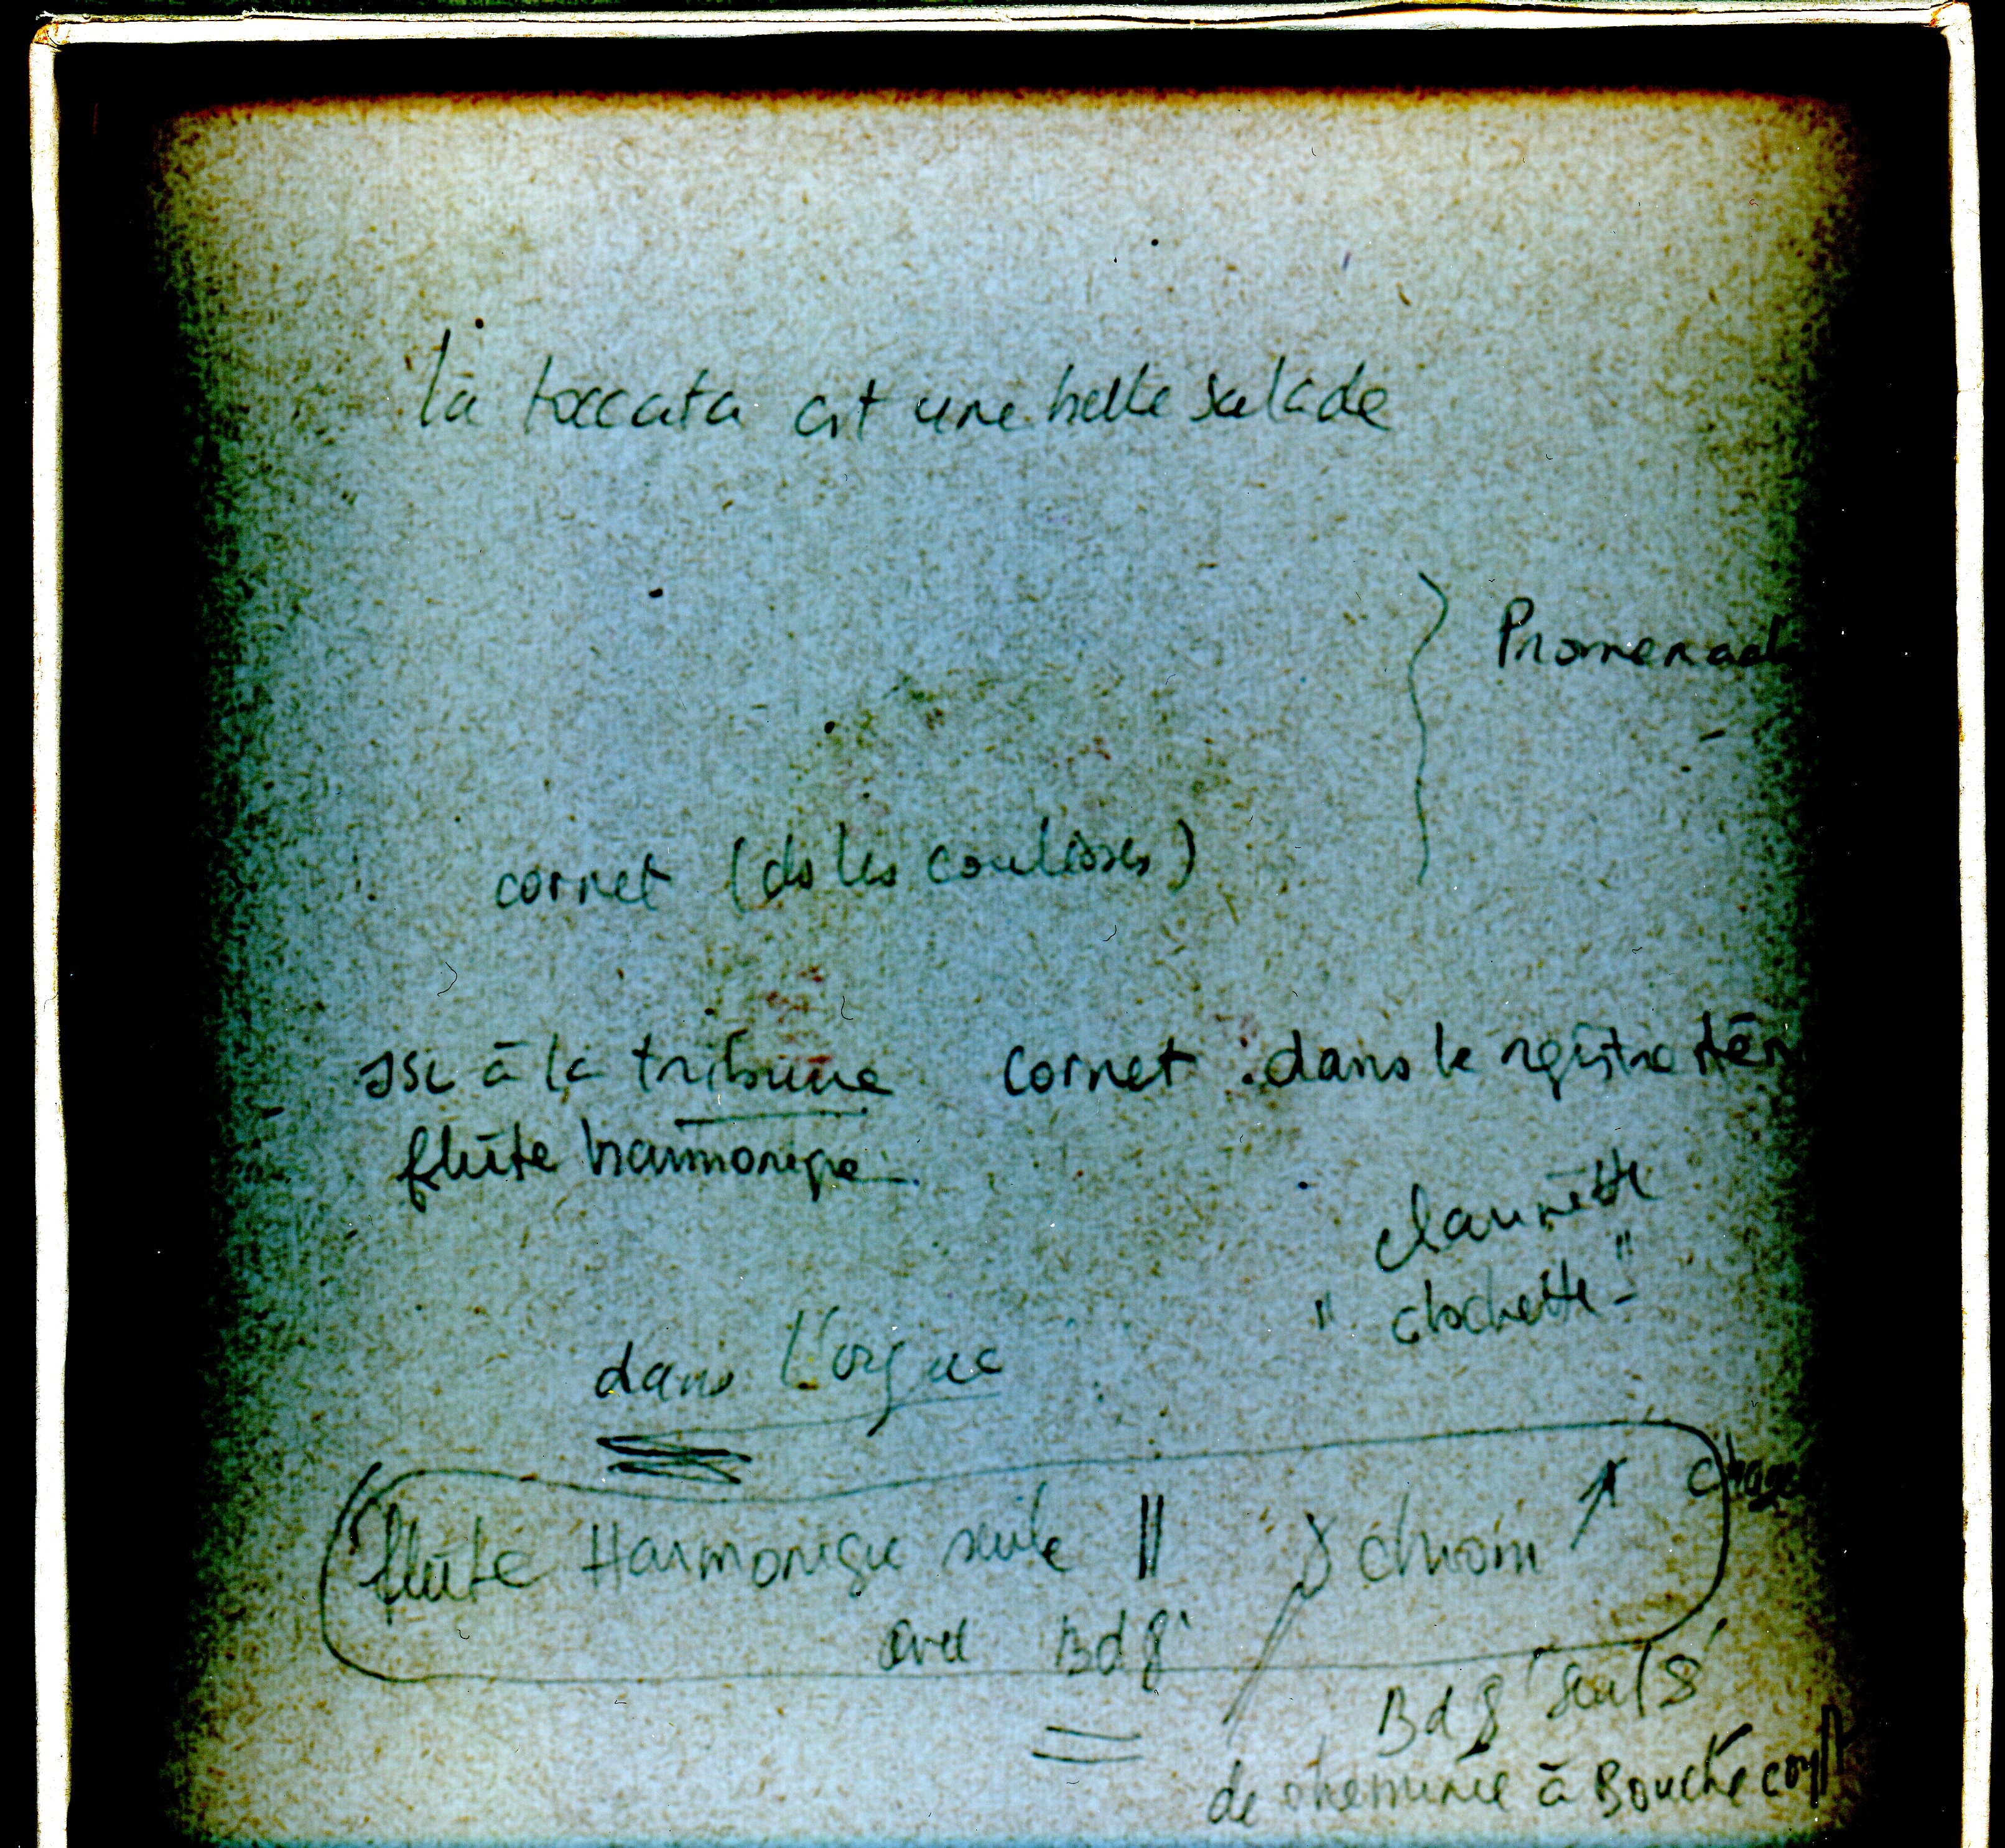 la toccata est une belle salade
Promenad
cornet (ds les coulisses)
à la tribune cornet : dans le registre
flûte harmonique.
clarinette
" clochette - "
dans l'orgue
flûte Harmonique seule ||
avec Bd 8'
Bd 8'
de cheminée à Bouché